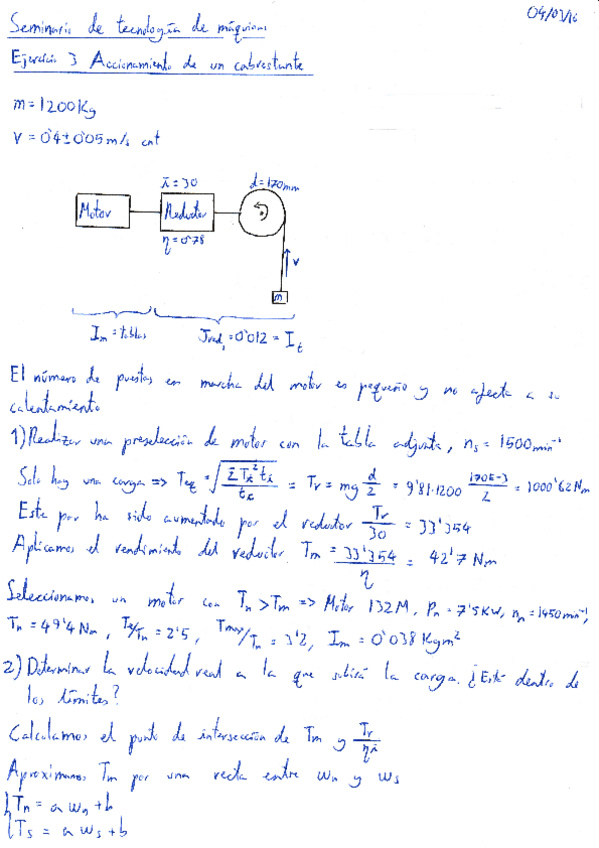 04/03/16
Seminario de tecnología de máquinas
Ejercicio 3 Accionamiento de un cabrestante
m = 1200 Kg
v = 0'4 ± 0'05 m/s cnt
i = 30
d = 170 mm
Motor
Reductor
η = 0'78
v
m
I_m = tablas
J_red = 0'012 = I_t
El número de puestas en marcha del motor es pequeño y no afecta a su
calentamiento
1) Realizar una preselección de motor con la tabla adjunta, n_s = 1500 min⁻¹
Solo hay una carga => T_eq = √(ΣT_i² t_i / t_c) = T_r = mg d/2 = 9'81·1200 170E-3/2 = 1000'62 Nm
Este par ha sido aumentado por el reductor T_r/30 = 33'354
Aplicamos el rendimiento del reductor. T_m = 33'354/η = 42'7 Nm
Seleccionamos un motor con T_n > T_m => Motor 132M, P_n = 7'5 KW, n_n = 1450 min⁻¹,
T_n = 49'4 Nm, T_a/T_n = 2'5, T_max/T_n = 3'2, I_m = 0'038 Kgm²
2) Determinar la velocidad real a la que subirá la carga. ¿Está dentro de
los límites?
Calculamos el punto de intersección de T_m y T_r/ηi
Aproximamos T_m por una recta entre ω_n y ω_s
T_n = a ω_n + b
T_s = a ω_s + b